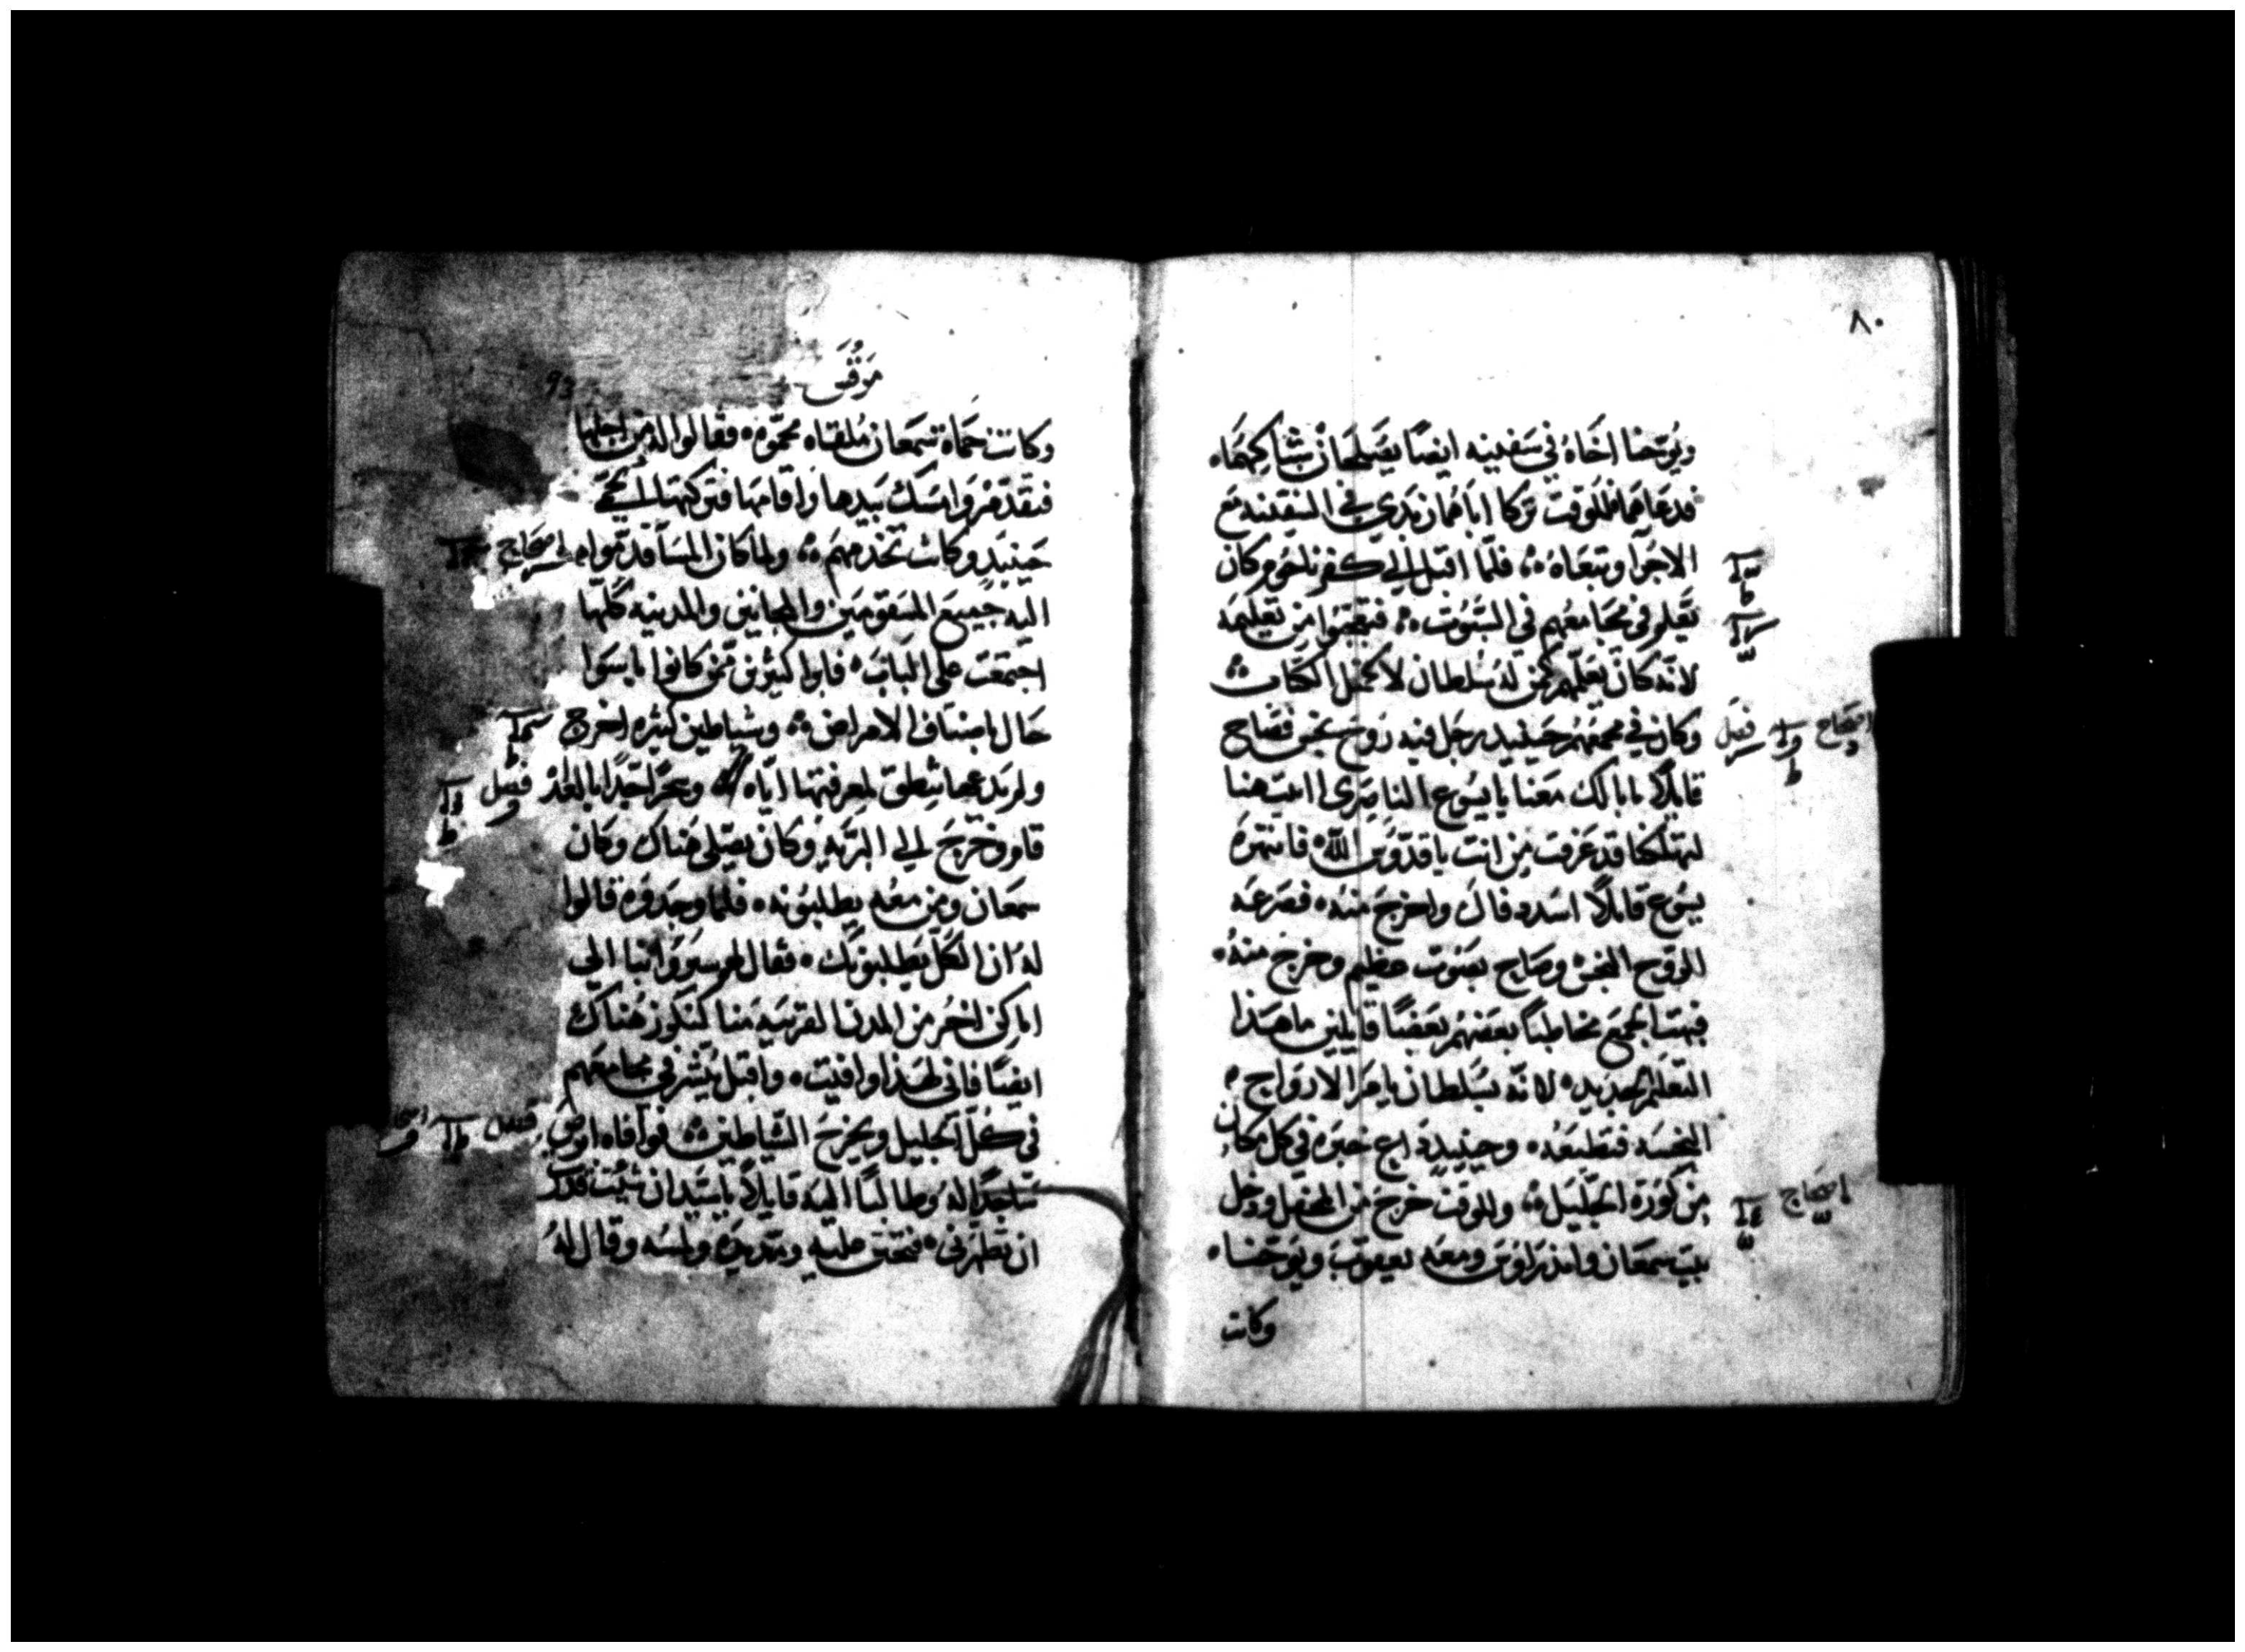 ٨٠
ويوحنا اخاه في سفينه ايضا يصلحان شباكهما
فدعاهما فللوقت تركا اباهما زبدي في السفينه مع
الاجرآ وتبعاه ؛ فلما اقبل الي كفرناحوم كان
يعلم في مجامعهم في السبوت ؛ فبهتوا من تعليمه
لانه كان يعلمهم كمن له سلطان لا كمثل الكتاب
وكان في مجمعهم حينيد رجل فيه روح نجس فصاح
فصل
افتتاح
قايلاً ما بالك معنا يا يسوع الناصري اتيت هنا
لتهلكنا قد عرفت من انت يا قدوس الله فانتهره
يسوع قايلاً اسدد فاك واخرج منه فصرعه
الروح النجس وصاح بصوت عظيم وخرج منه
فبهت الجميع مخاطباً بعضهم بعضاً قايلين ما هذا
التعليم الجديد لانه بسلطان يامر الارواح
النجسه فتطيعه وحينيد ذاع خبره في كل مكان
من كورة الجليل ؛ وللوقت خرج من المحفل ودخل
افتتاح
بيت سمعان واندراوس ومعه يعقوب ويوحنا
وكانت
مرقس
93
وكانت حماة سمعان ملقاه محمومه فقالوا له من اجلها
فتقدم وامسك بيدها واقامها فتركتها الحمي
حينيد وكانت تخدمهم ؛ ولما كان المسآ قدموا
افتتاح
اليه جميع المسقومين والمجانين والمدينه كلها
اجتمعت على الباب فابرا كثيرين ممن كانوا باسوا
حال باصناف الامراض ؛ وشياطين كثيره اخرج
ولم يدعها تنطق لمعرفتها اياه وسحر جداً بالغد
فصل
قام وخرج الي البريه وكان يصلي هناك وكان
سمعان ومن معه يطلبونه فلما وجدوه قالوا
له ان الكل يطلبونك فقال لهم سيروا بنا الي
اماكن اخر من المدن القريبه منا لنكرز هناك
ايضاً فاني لهذا وافيت واقبل يبشر في مجامعهم
في كل الجليل ويخرج الشياطين فوافاه ابرص
فصل
ساجداً له وطالباً اليه قايلاً يا سيد ان شئت قدرت
ان تطهرني فتحنن عليه ومد يده ولمسه وقال له